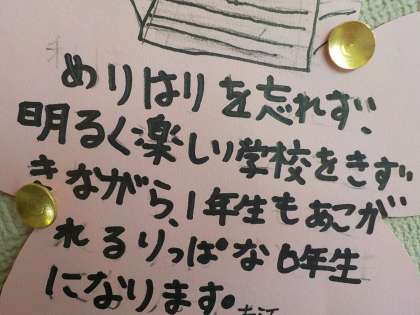 めりはりを忘れず、
明るく楽しい学校をきず
きながら、1年生もあこが
れるりっぱな6年生
になります。